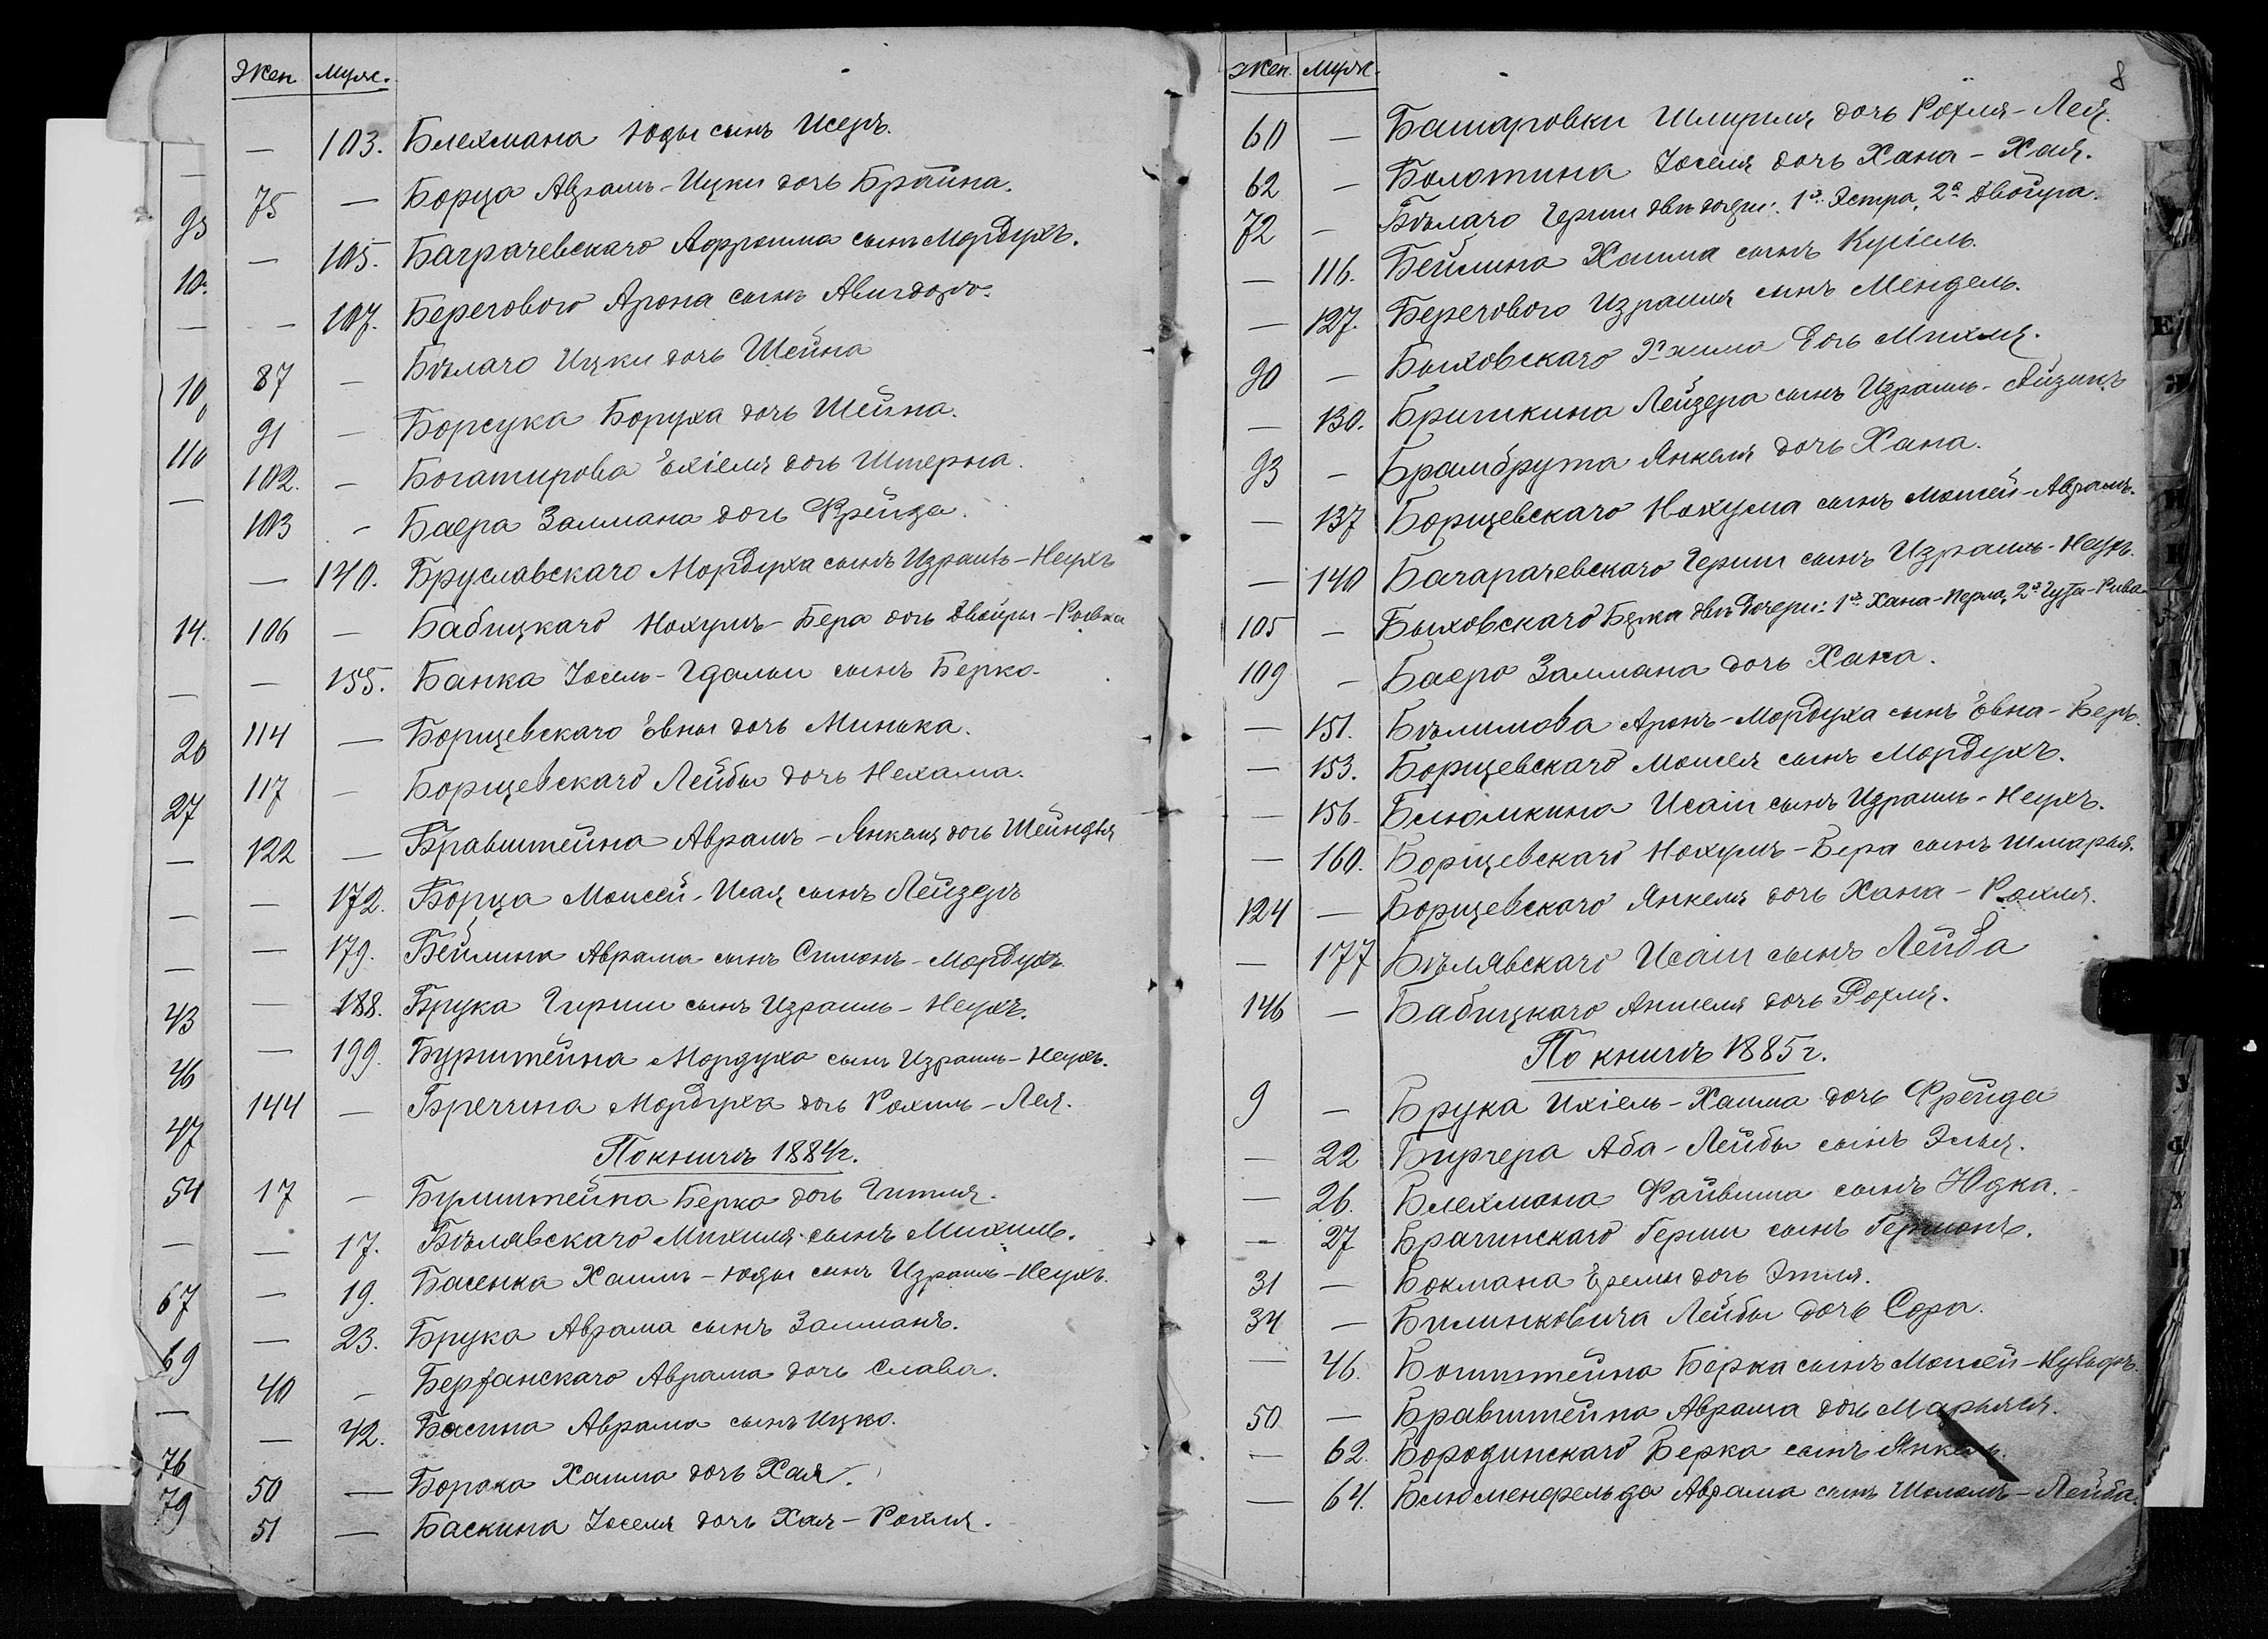 Жен. Муж.
— 103. Блехмана Юды сынъ Исеръ.
75 — Борца Аврамъ-Ицки дочь Брайна.
— 105. Баграчевскаго Афроима сынъ Мордухъ.
— 107. Берегового Арона сынъ Авигдоръ.
87 — Бѣлаго Ицки дочь Шейна
91 — Борсука Боруха дочь Шейна.
102. — Богатирова Ехіеля дочь Штерна.
103 — Баера Залмана дочь Фрейда.
— 140. Бруславскаго Мордуха сынъ Израиль-Неухъ
106 — Бабицкаго Нохумъ-Бера дочь Двойры-Ривка
— 155. Банка Іосель-Гдальи сынъ Берко.
114 — Борщевскаго Евны дочь Минька.
117 — Борщевскаго Лейбы дочь Нехама.
122 — Бравштейна Аврамъ-Янкеля дочь Шейндля
— 172. Борца Моисей-Исая сынъ Лейзеръ
— 179. Бейлина Аврама сынъ Симонъ-Мордухъ
— 188. Брука Гирши сынъ Израиль-Неухъ.
— 199. Бурштейна Мордуха сынъ Израиль-Неухъ.
144 — Бреггина Мордуха дочь Рохиль-Лея.
По книгѣ 1884г.
17 — Бумштейна Берка дочь Гитля.
— 17. Бѣлявскаго Михиля сынъ Михиль.
— 19. Басенка Хаимъ-Юды сынъ Израиль-Неухъ.
— 23. Брука Аврама сынъ Залманъ.
40 — Аврама дочь Слава.
— 42. Басина Аврама сынъ Ицко.
50 — Борака Хаима дочь Хая.
51 — Баскина Іоселя дочь Хая-Рохля.
93
10
10
110
14.
26
27
43
46
47
54
67
69
76
79
8
Жен. Муж.
60 — Башаровки Шмуиля дочь Рохля-Лея.
62 — Болотина Іоселя дочь Хана-Хая.
72 — Бѣлаго Герши двѣ дочери: 1я Эстра, 2я Двойра.
— 116. Бейлина Хаима сынъ Куріель.
— 127. Берегового Израиля сынъ Мендель.
90 — Быховскаго Хаима дочь Михля.
— 130. Бришкина Лейзера сынъ Израиль-Айзикъ
93 — Брамбрута Янкеля дочь Хана.
— 137 Борщевскаго Нохума сынъ Моисей-Аврамъ.
— 140 Багарачевскаго Герши сынъ Израиль-Неухъ.
105 — Быховскаго Берка двѣ дочери: 1я Хана-Перла, 2я Гута-Рива
109 — Баера Залмана дочь Хана.
— 151. Бѣлимова Аронъ-Мордуха сынъ Евна-Беръ.
— 153. Борщевскаго Моисея сынъ Мордухъ.
— 156. Блюмкина Исаіи сынъ Израиль-Неухъ.
— 160. Борщевскаго Нохумъ-Бера сынъ Шмарья.
124 — Борщевскаго Янкеля дочь Хана-Рохля.
— 177 Бѣлявскаго Исаіи сынъ Лейба
146 — Бабицкаго Аншеля дочь Рохля.
По книгѣ 1885г.
9 — Брука Ихіель-Хаима дочь Фрейда
— 22 Бургера Аба-Лейбы сынъ Элья.
— 26. Блехмана Файвиша сынъ Юдка.
— 27 Брагинскаго Герши сынъ Гершонъ.
31 — Бокмана Еремы дочь Этля.
34 — Билинковича Лейбы дочь Сора.
— 46. Берка сынъ Моисей-
50 — Бравштейна Аврама дочь Марьяся.
— 62. Бородинскаго Берка сынъ Янкель.
— 64. Блюменфельда Аврама сынъ Шоломъ-Лейба.